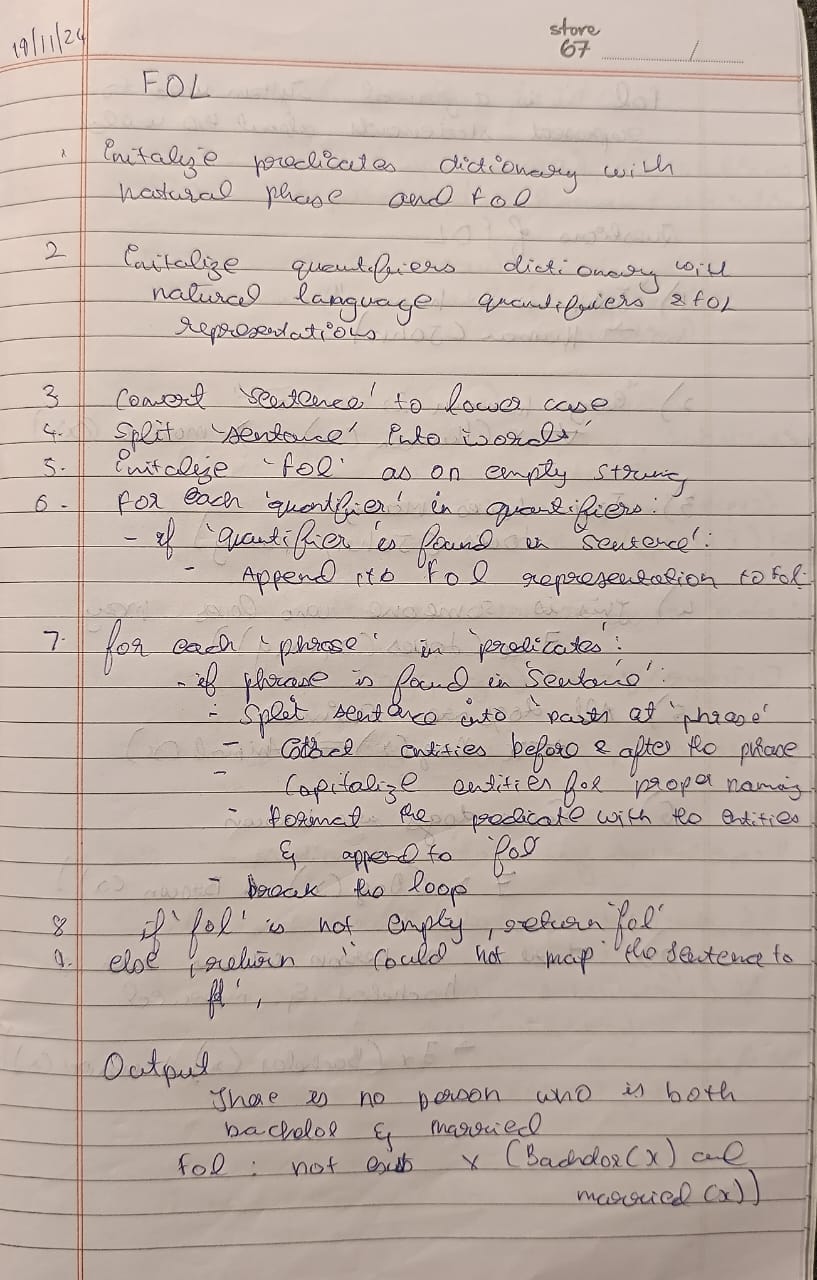 19/11/24
store
67 /
FOL
1 Initalize predicates dictionary with
natural phase and fol
2 Initalize quantifiers dictionary with
natural language quantifiers & FOL
representations
3 Convert 'sentence' to lower case
4. Split 'sentence' into words'
5. Initalize 'fol' as an empty string
6. For each 'quantifier' in quantifiers:
- if 'quantifier is found in sentence':
- Append its fol representation to fol.
7. for each 'phrase' in 'predicates':
- if phrase is found in sentence':
- Split sentence into 'parts at 'phrase'
- entities before & after the phrase
- Capitalize entities for proper naming
- format the predicate with the entities
& append to fol
- break the loop
8 if 'fol' is not empty, return 'fol'
9. else, return "Could not map the sentence to
fol",
Output
There is no person who is both
bachelor & married
fol: not exists x (Bachelor(x) and
married (x))